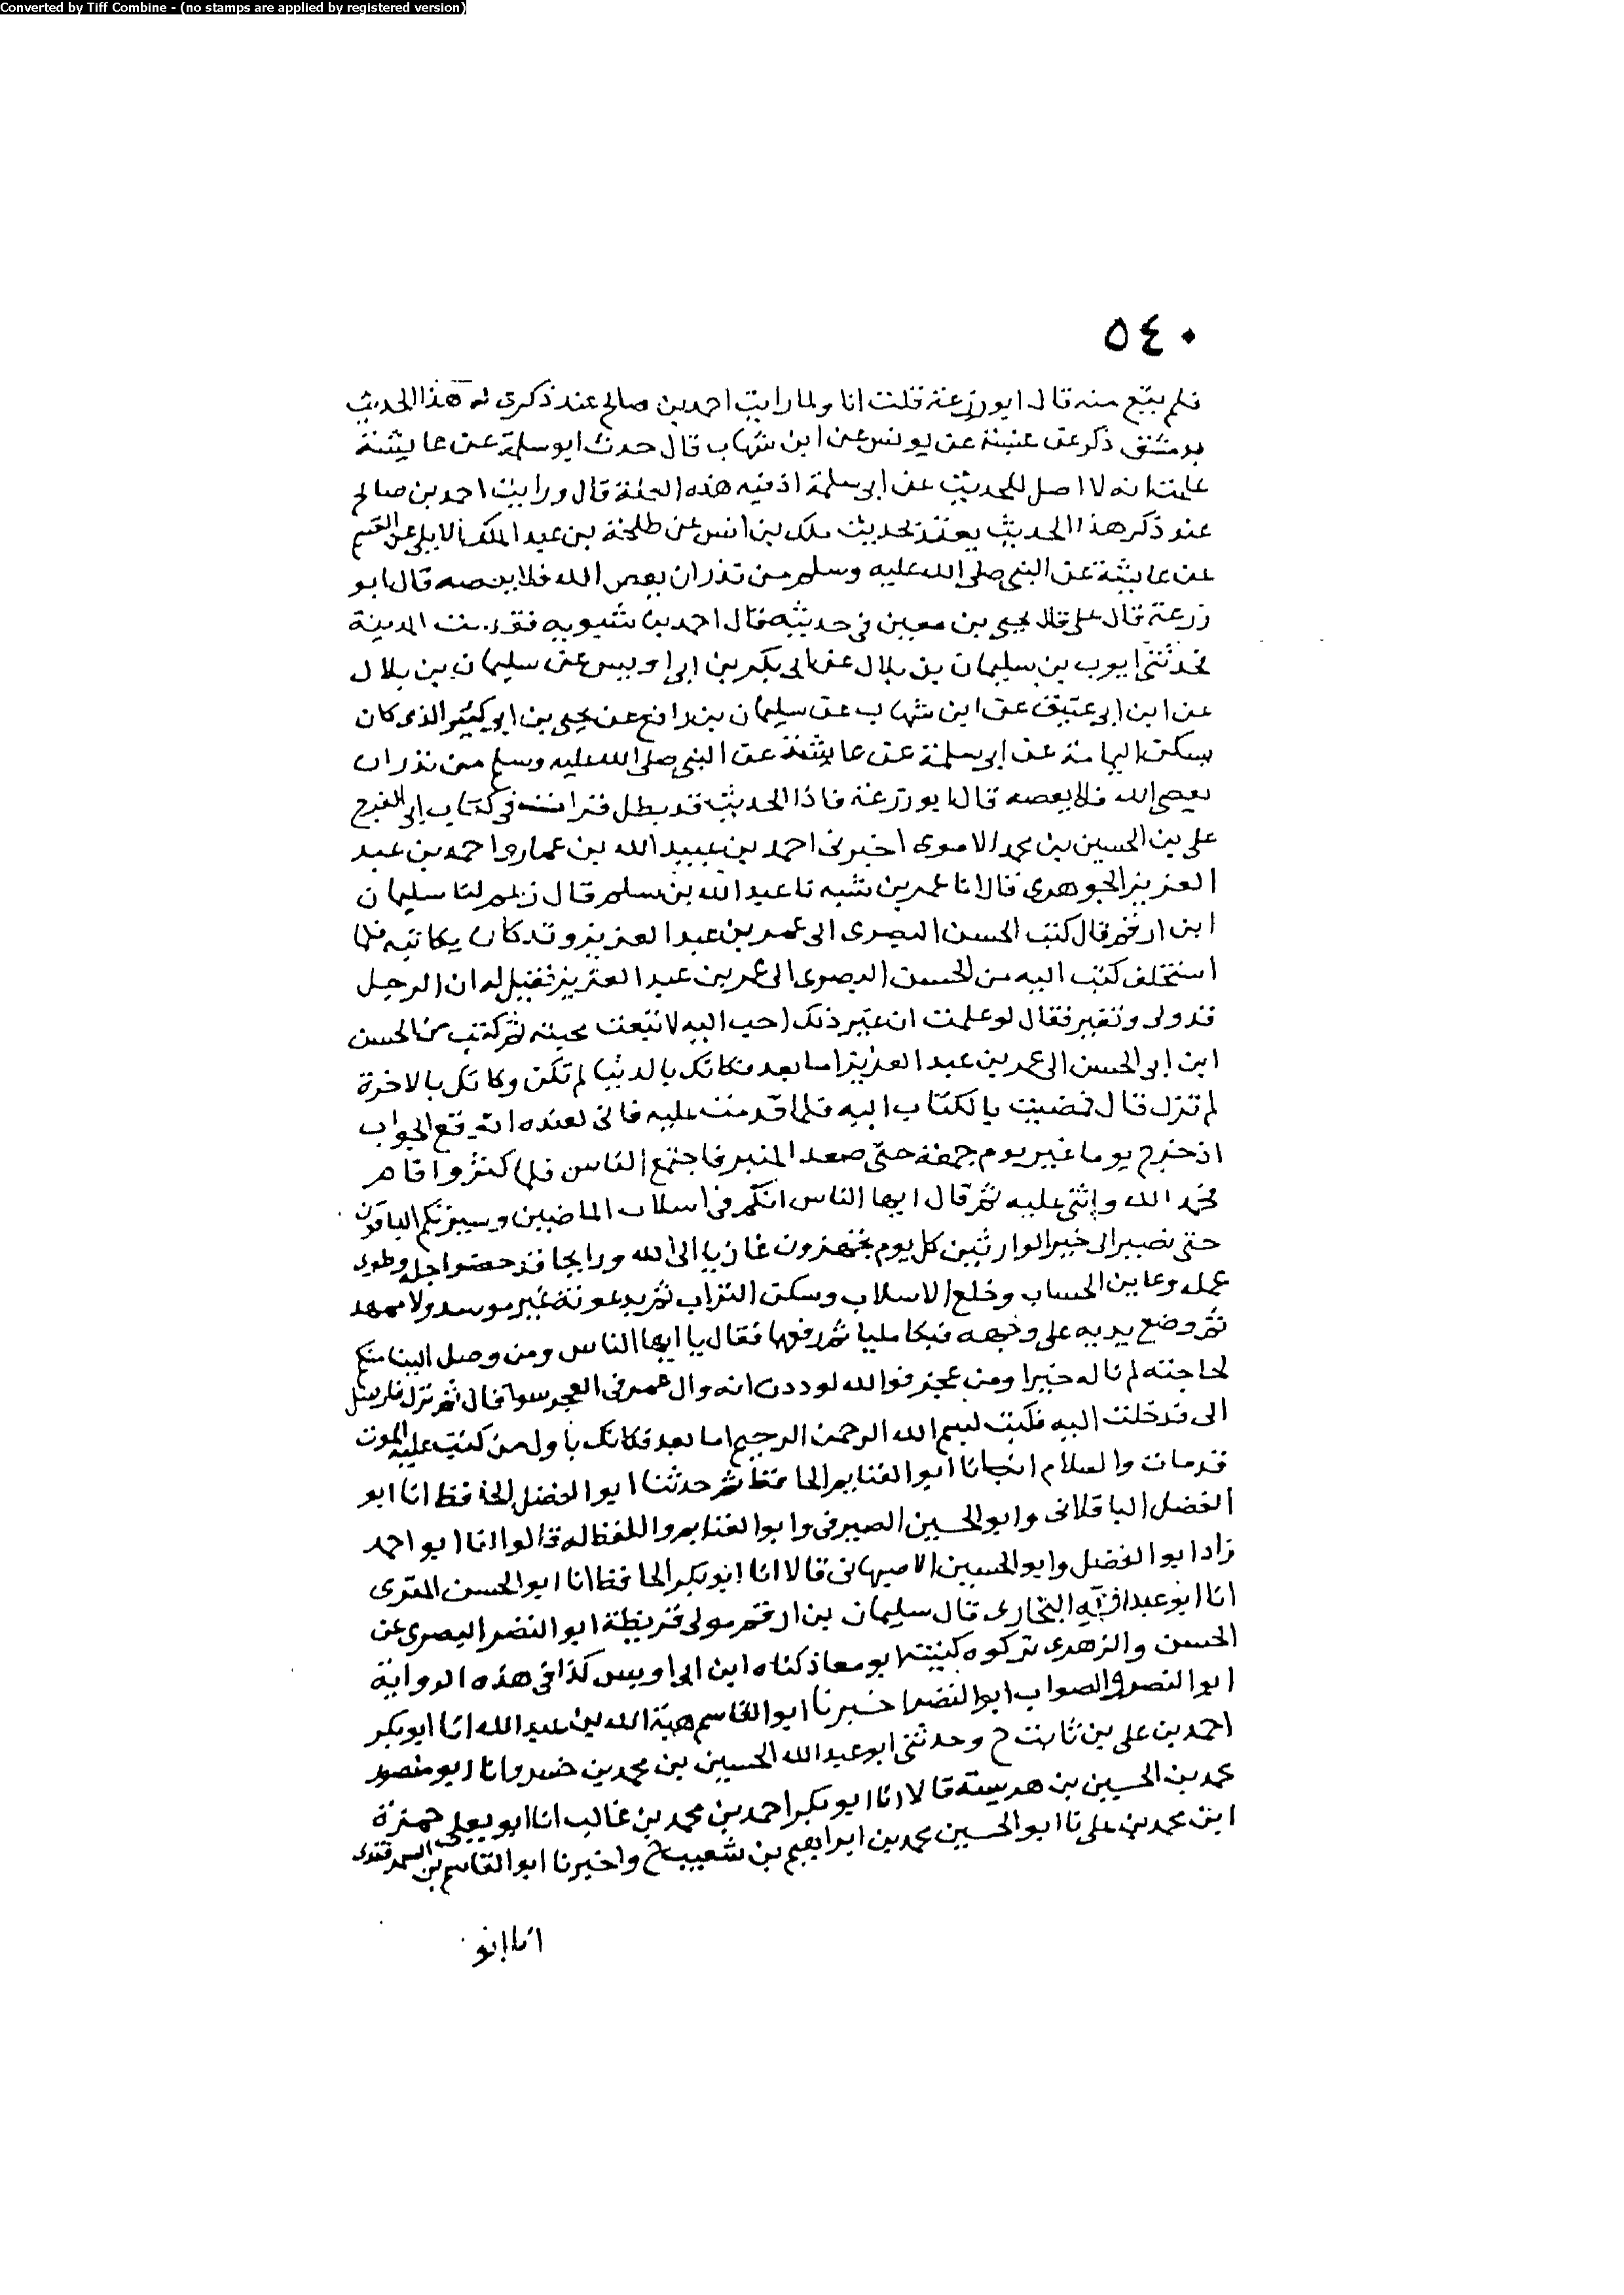 Converted by Tiff Combine - (no stamps are applied by registered version)
٥٤٠
فلم يتبع منه قال ابو زرعة قلت انا ولما رايت احمد بن صالح عند ذكري له هذا الحديث
بدمشق ذكر عن عنبسة عن يونس عن ابن شهاب قال حدث ابو سلمة عن عايشة
علمت انه لا اصل للحديث عن ابي سلمة اذ فيه هذه العلة قال ورايت احمد بن صالح
عند ذكر هذا الحديث بحديث ملك بن انس عن طلحة بن عبد الملك الايلي عن القسم
عن عايشة عن النبي صلى الله عليه وسلم من نذر ان يعص الله فلا يعصه قال ابو
زرعة قال علي قال يحيى بن معين في حديثه فقال احمد بن شبويه فقدمت المدينة
فحدثني ايوب بن سليمان بن بلال عن ابي بكر بن ابي اويس عن سليمان بن بلال
عن ابن ابي عتيق عن ابن شهاب عن سليمان بن رافع عن يحيى بن ابي كثير الذي كان
يسكن اليمامة عن ابي سلمة عن عايشة عن النبي صلى الله عليه وسلم من نذر ان
يعصي الله فلا يعصه قال ابو زرعة فاذا الحديث قد بطل قرات في كتاب ابي الفرج
علي بن الحسين بن محمد الاموي اخبرني احمد بن عبيد الله بن عمار واحمد بن عبد
العزيز الجوهري قالا نا عمر بن شبه نا عبد الله بن سلم قال زعم لنا سليمان
ابن ارقم قال كتب الحسن البصري الى عمر بن عبد العزيز وقد كان يكاتبه فلما
استخلف كتب اليه من الحسن البصري الى عمر بن عبد العزيز فقيل له ان الرجل
قد ولى وتغير فقال لو علمت ان غير ذلك احب اليه لاتبعت محبته ثم كتب من الحسن
ابن ابي الحسن الى عمر بن عبد العزيز اما بعد فكانك بالدنيا لم تكن وكانك بالاخرة
لم تزل قال فمضيت بالكتاب اليه فلما قدمت عليه فاني لعنده اتوقع الجواب
اذ خرج يوما غير يوم جمعة حتى صعد المنبر فاجتمع الناس فلما كثروا قام
فحمد الله واثنى عليه ثم قال ايها الناس انكم في اسلاب الماضين وسيرثكم الباقون
حتى نصير الى خير الوارثين كل يوم تجهزون غاديا الى الله ورايحا قد حضر اجله وطوي
عمله وعاين الحساب وخلع الاسلاب وسكن التراب ثم يدعونه غير موسد ولا ممهد
ثم وضع يديه على وجهه فبكا مليا ثم رفعها فقال يا ايها الناس ومن وصل الينا منكم
لحاجته لم ناله خيرا ومن عجز فوالله لوددت انه وال عمر في العجز سوا قال ثم نزل فارسل
الي فدخلت اليه فكتب لبسم الله الرحمن الرحيم اما بعد فكانك باول من كتب عليه الموت
قد مات والسلام انبانا ابو الغنايم الحافظ ثم حدثنا ابو الفضل الحافظ انا ابو
الفضل الباقلاني وابو الحسين الصيرفي وابو الغنايم واللفظ له قالوا انا ابو احمد
زاد ابو الفضل وابو الحسين الاصبهاني قالا انا ابو بكر الحافظ انا ابو الحسن المقري
انا ابو عبد الله البخاري قال سليمان بن ارقم مولى قريظة ابو النضر البصري عن
الحسن والزهري تركوه كنيته ابو معاذ كناه ابن ابي اويس كذا في هذه الرواية
ابو النصر والصواب ابو النضر اخبرنا ابو القاسم هبة الله بن عبد الله انا ابو بكر
احمد بن علي بن ثابت ح وحدثني ابو عبد الله الحسين بن محمد بن خسرو انا ابو منصور
محمد بن الحسين بن هريسة قالا انا ابو بكر احمد بن محمد بن غالب انا ابو يعلى حمزة
ابن محمد بن علي نا ابو الحسين محمد بن ابراهيم بن شعيب ح واخبرنا ابو القاسم بن السمرقندي
انا ابو